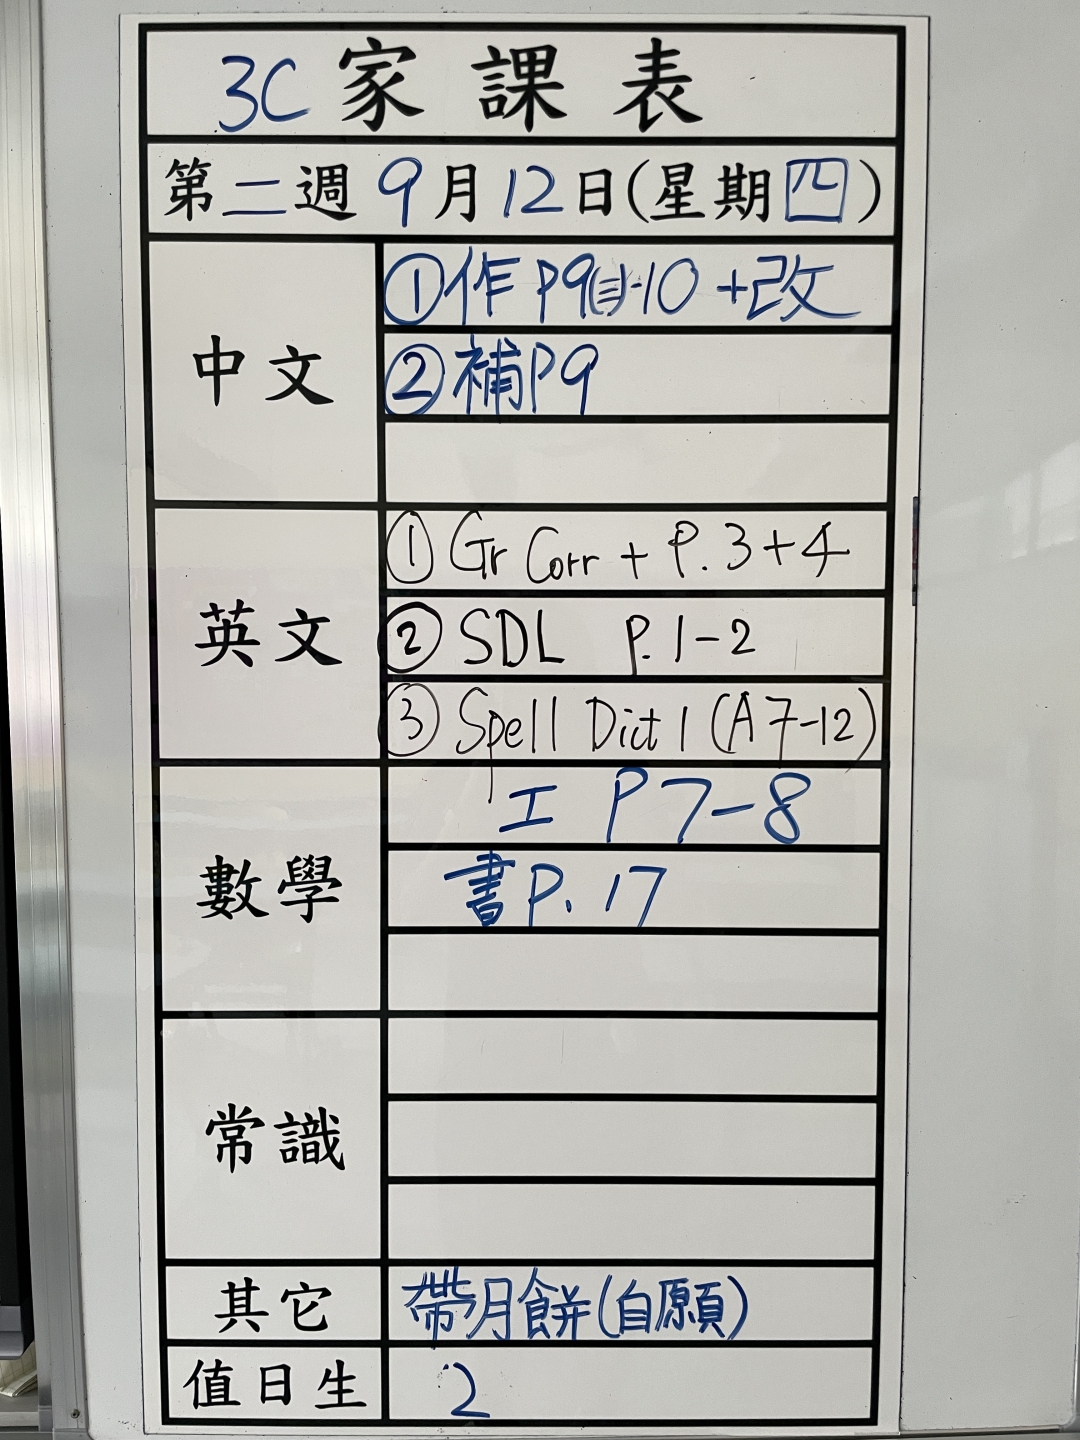 3C 家課表
第二週 9月12日(星期四)
中文
①作 P9(三)-10 +改
②補P9
英文
① Gr Corr + P. 3+4
② SDL P. 1-2
③ Spell Dict 1 (A7-12)
數學
工 P 7-8
書P. 17
常識
其它
帶月餅(自願)
值日生
2